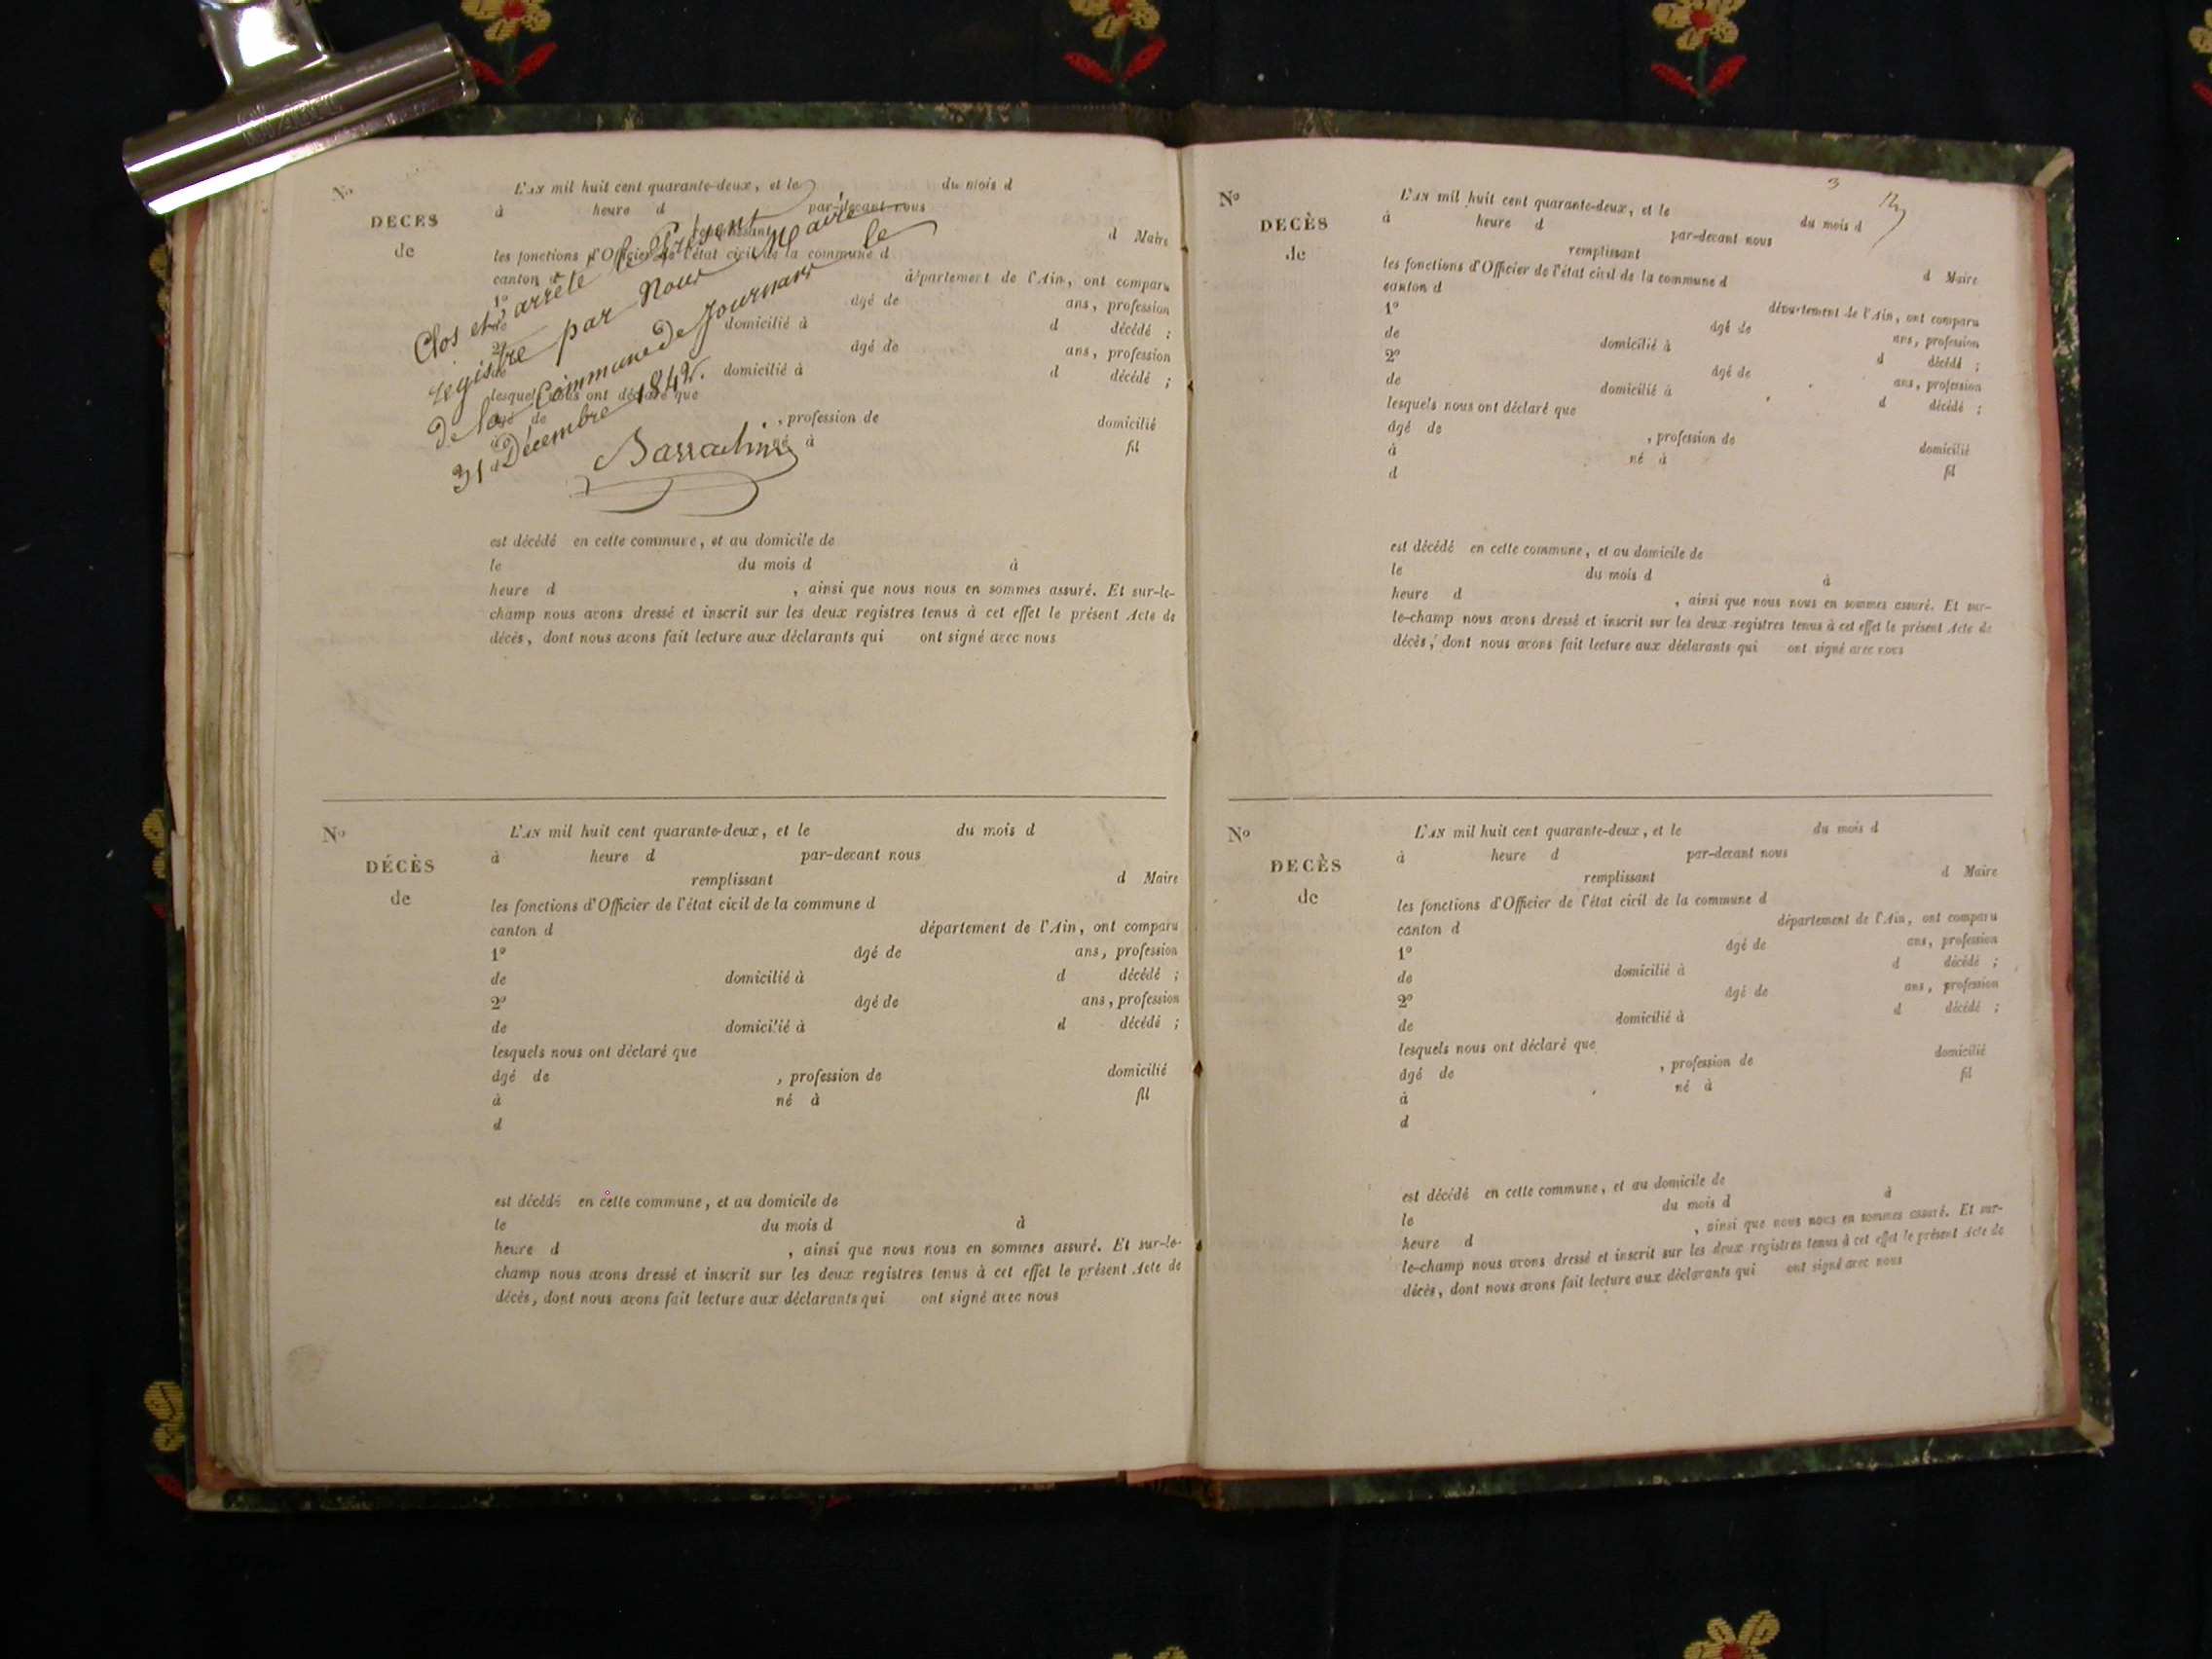 No
DECES
de
L'AN mil huit cent quarante-deux, et le du mois d
à heure d par-devant nous
remplissant d Maire
les fonctions d'Officier de l'état civil de la commune d
canton d département de l'Ain, ont comparu
1o âgé de ans, profession
de domicilié à d décédé ;
2o âgé de ans, profession
de domicilié à d décédé ;
lesquels nous ont déclaré que
âgé de , profession de domicilié
à né à fil
d
Clos et arrêté le Présent
registre par Nous Maire
de la Commune de Journans le
31 Décembre 1842.
est décédé en cette commune, et au domicile de
le du mois d à
heure d , ainsi que nous nous en sommes assuré. Et sur-le-
champ nous avons dressé et inscrit sur les deux registres tenus à cet effet le présent Acte de
décès, dont nous avons fait lecture aux déclarants qui ont signé avec nous
No
DÉCÈS
de
L'AN mil huit cent quarante-deux, et le du mois d
à heure d par-devant nous
remplissant d Maire
les fonctions d'Officier de l'état civil de la commune d
canton d département de l'Ain, ont comparu
1o âgé de ans, profession
de domicilié à d décédé ;
2o âgé de ans, profession
de domicilié à d décédé ;
lesquels nous ont déclaré que
âgé de , profession de domicilié
à né à fil
d
est décédé en cette commune, et au domicile de
le du mois d à
heure d , ainsi que nous nous en sommes assuré. Et sur-le-
champ nous avons dressé et inscrit sur les deux registres tenus à cet effet le présent Acte de
décès, dont nous avons fait lecture aux déclarants qui ont signé avec nous
3
No
DECÈS
de
L'AN mil huit cent quarante-deux, et le du mois d
à heure d par-devant nous
remplissant d Maire
les fonctions d'Officier de l'état civil de la commune d
canton d département de l'Ain, ont comparu
1o âgé de ans, profession
de domicilié à d décédé ;
2o âgé de ans, profession
de domicilié à d décédé ;
lesquels nous ont déclaré que
âgé de , profession de domicilié
à né à fil
d
est décédé en cette commune, et au domicile de
le du mois d à
heure d , ainsi que nous nous en sommes assuré. Et sur-
le-champ nous avons dressé et inscrit sur les deux registres tenus à cet effet le présent Acte de
décès, dont nous avons fait lecture aux déclarants qui ont signé avec nous
No
DECÈS
de
L'AN mil huit cent quarante-deux, et le du mois d
à heure d par-devant nous
remplissant d Maire
les fonctions d'Officier de l'état civil de la commune d
canton d département de l'Ain, ont comparu
1o âgé de ans, profession
de domicilié à d décédé ;
2o âgé de ans, profession
de domicilié à d décédé ;
lesquels nous ont déclaré que
âgé de , profession de domicilié
à né à fil
d
est décédé en cette commune, et au domicile de
le du mois d à
heure d , ainsi que nous nous en sommes assuré. Et sur-
le-champ nous avons dressé et inscrit sur les deux registres tenus à cet effet le présent Acte de
décès, dont nous avons fait lecture aux déclarants qui ont signé avec nous